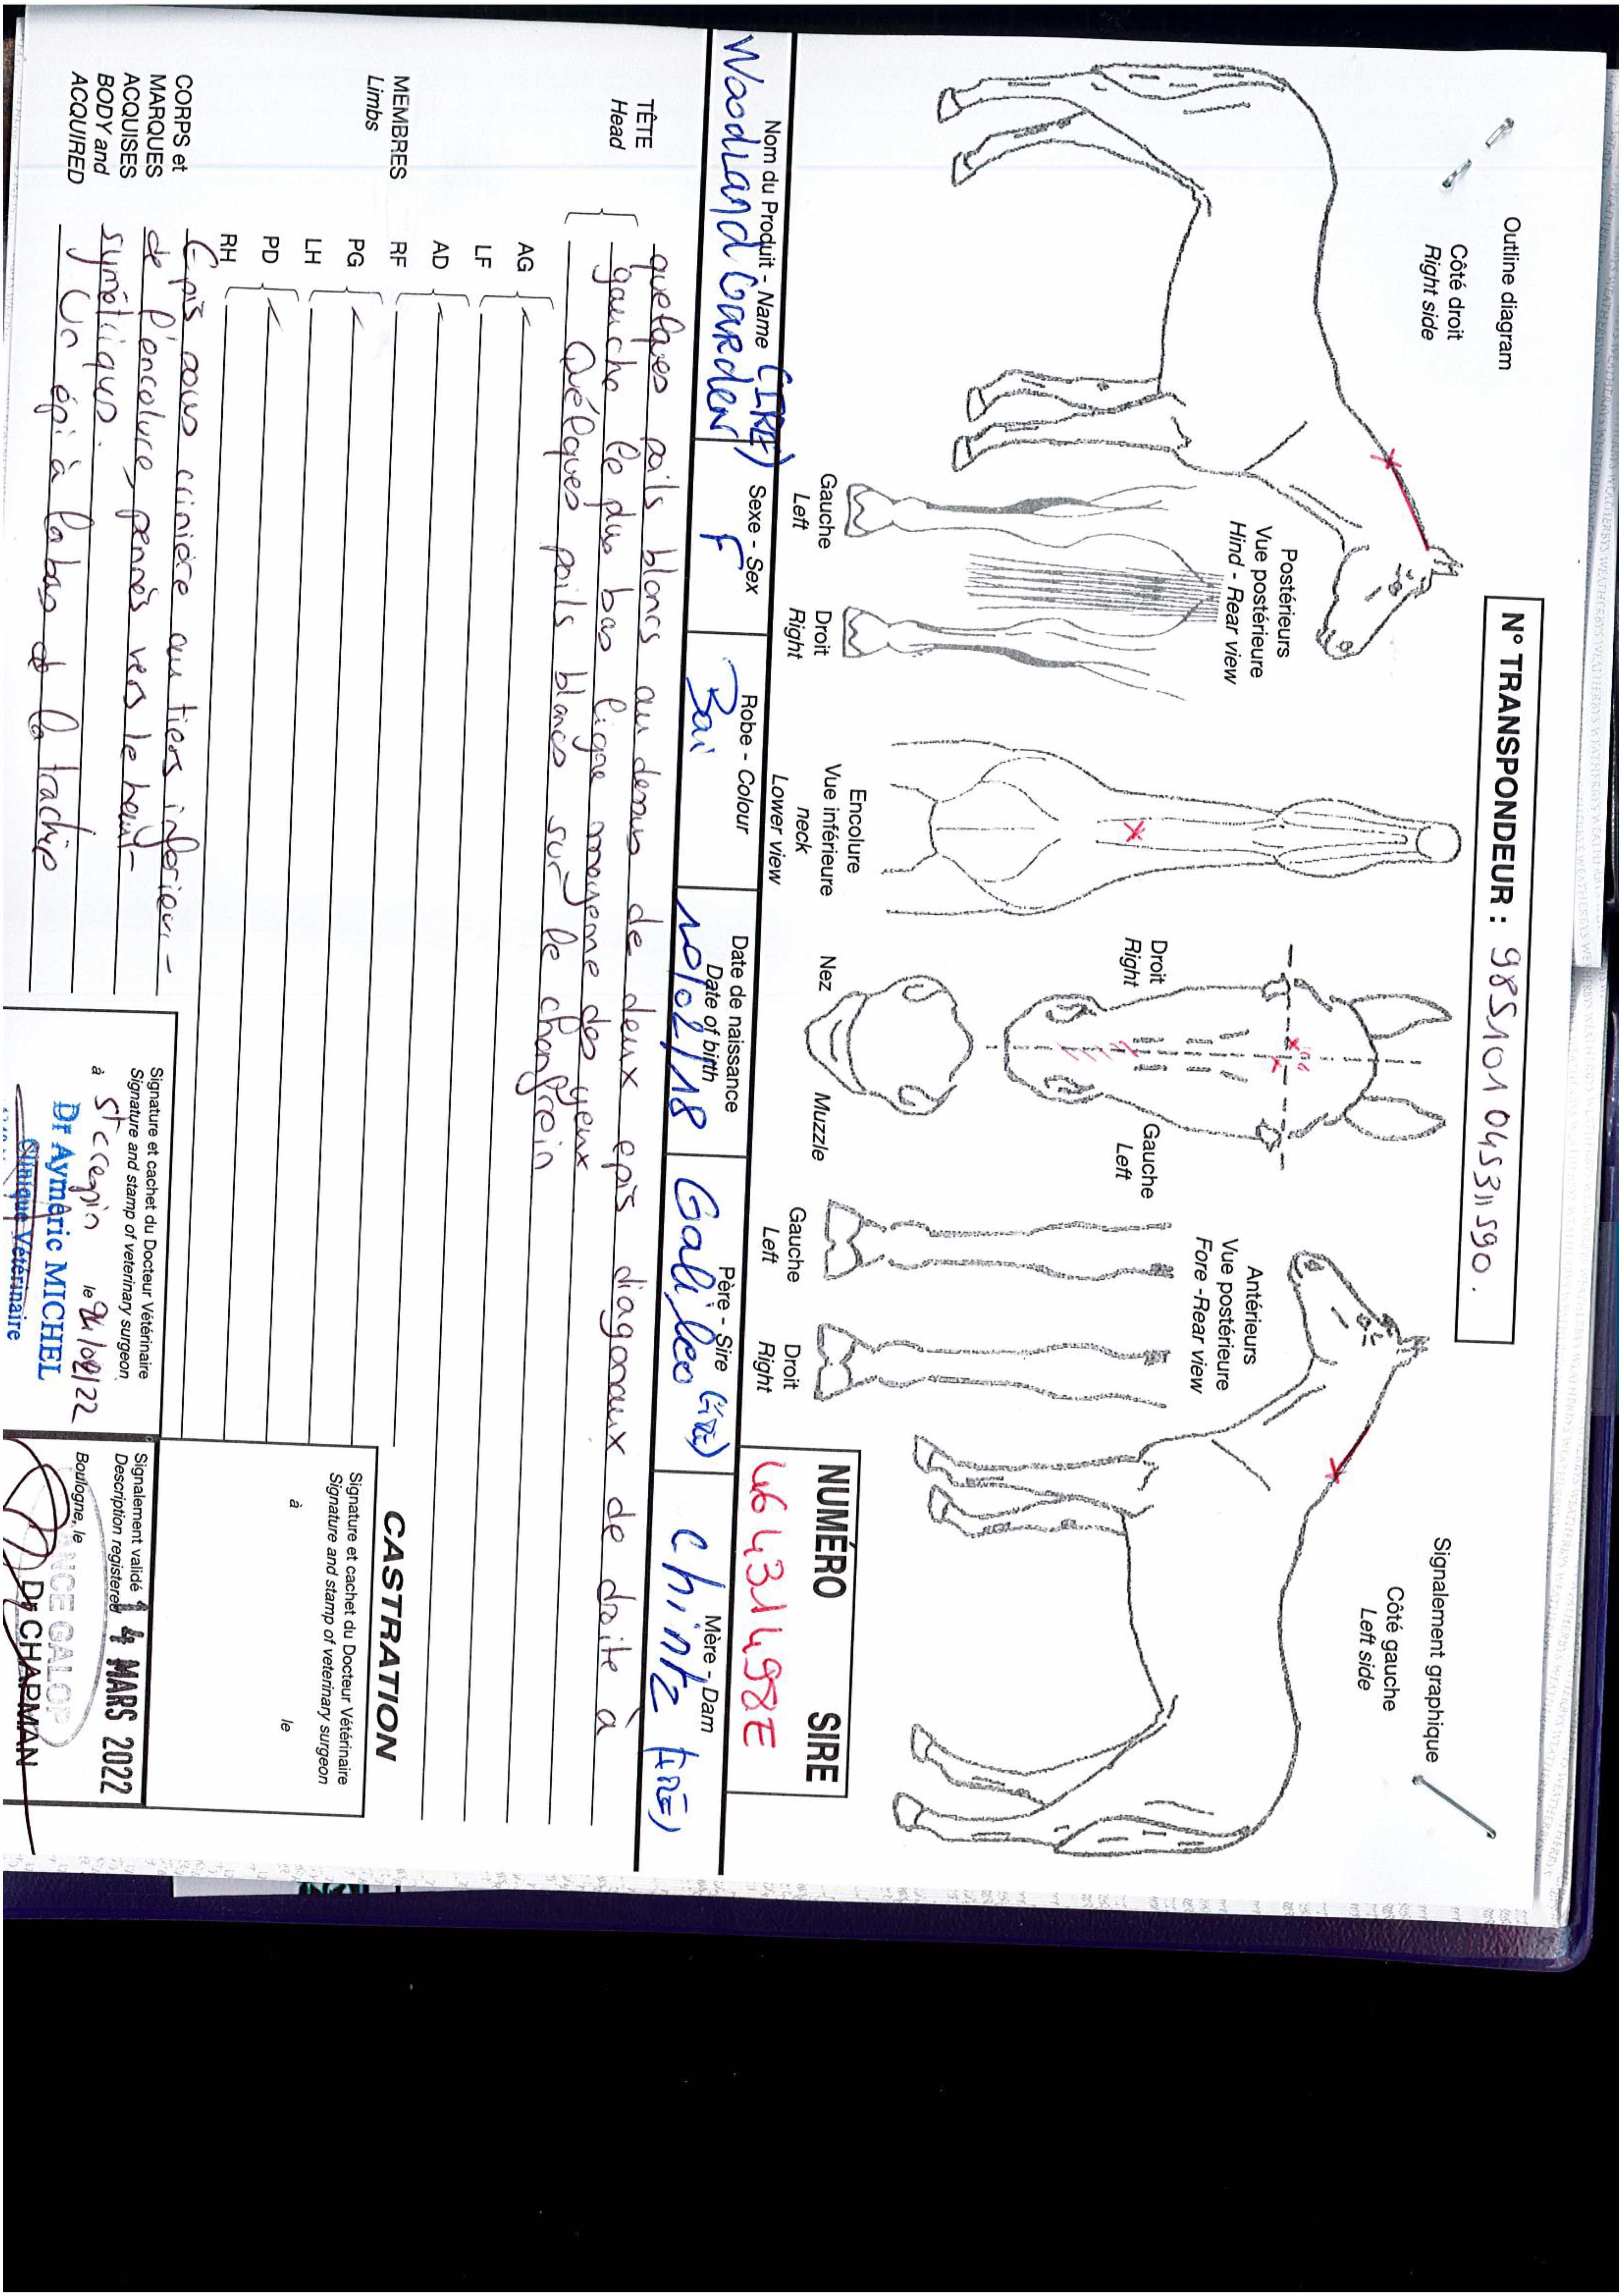 Outline diagram
Côté droit
Right side
N° TRANSPONDEUR : 985101045311590.
Signalement graphique
Côté gauche
Left side
Postérieurs
Vue postérieure
Hind - Rear view
Gauche
Left
Droit
Right
Encolure
Vue inférieure
neck
Lower view
Droit
Right
Gauche
Left
Nez
Muzzle
Antérieurs
Vue postérieure
Fore -Rear view
Gauche
Left
Droit
Right
NUMÉRO SIRE
Nom du Produit - Name
WoodLand Garden (IRE)
Sexe - Sex
F
Robe - Colour
Bai
Date de naissance
Date of birth
10/02/18
Père - Sire
Galileo (IRE)
Mère - Dam
Chintz (IRE)
TÊTE
Head
quelques poils blancs au dessus de deux epis diagonaux de droite à
gauche le plus bas ligne moyenne des yeux
Quelques poils blancs sur le chanfrein
MEMBRES
Limbs
AG
LF
AD
RF
PG
LH
PD
RH
CORPS et
MARQUES
ACQUISES
BODY and
ACQUIRED
Epis sous crinière au tiers inférieur
de l'encolure, pennés vers le haut
symétriques.
Un épi à la bas de la trachée
CASTRATION
Signature et cachet du Docteur Vétérinaire
Signature and stamp of veterinary surgeon
à le
Signature et cachet du Docteur Vétérinaire
Signature and stamp of veterinary surgeon
à St crepin le
Dr Aymeric MICHEL
Clinique Vétérinaire
Signalement validé
Description registered
14 MARS 2022
Boulogne, le
Dr CHAPMAN